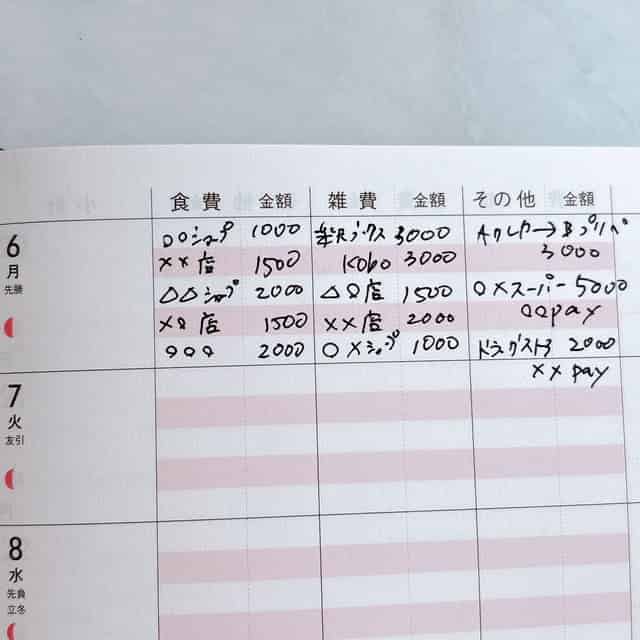 食費 金額 雑費 金額 その他 金額
6
月
先勝
○○ショップ 1000 楽天ブックス 3000 Aクレカ→Bプリペ
××店 1500 kobo 3000 3000
△△ショップ 2000 △○店 1500 ○×スーパー 5000
×○店 1500 ××店 2000 ○○pay
○○○ 2000 ○×ショップ 1000 ドラッグストア 2000
××pay
7
火
友引
8
水
先負
立冬